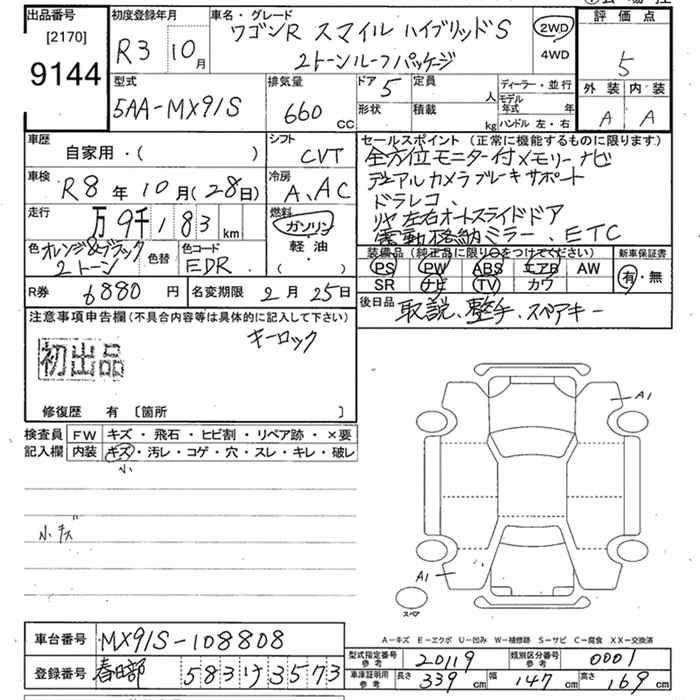 出品番号 初度登録年月 車名・グレード
[2170]
9144
R3 10月
ワゴンR スマイル ハイブリッドS
2トーンルーフパッケージ
2WD
4WD
評価点
5
外装 内装
A A
型式 排気量 ドア 定員 人 ディーラー・並行
5AA-MX91S 660 CC 5
形状 積載 kg モデル年式 年
ハンドル 左・右
車歴 シフト
自家用・( ) CVT
車検 冷房
R8年10月(28日) A、AC
走行 燃料
万9千183km ガソリン
軽油
( )
色 オレンジ&ブラック 2トーン 色替 色コード EDR
R券 6880円 名変期限 2月25日
セールスポイント(正常に機能するものに限ります)
全方位モニター付メモリーナビ
デュアルカメラブレーキサポート
ドラレコ、
リヤ左右オートスライドドア
電動格納ミラー、ETC
装備品(純正品に限り○をつけてください) 新車保証書
PS PW ABS エアB AW 有・無
SR ナビ TV カワ
後日品 取説、整手、スペアキー
注意事項申告欄(不具合内容等は具体的に記入して下さい)
キーロック
初出品
修復歴 有〔箇所 〕
検査員 FW キズ・飛石・ヒビ割・リペア跡・×要
記入欄 内装 キズ・汚レ・コゲ・穴・スレ・キレ・破レ
小
小キズ
A1
A1
スペア
A−キズ E−エクボ U−凹み W−補修跡 S−サビ C−腐食 XX−交換済
車台番号 MX91S-108808
登録番号 春日部 583 け 3573
型式指定番号 参考 20119 類別区分番号 参考 0001
車庫証明用 参考 長さ 339cm 幅 147cm 高さ 169cm